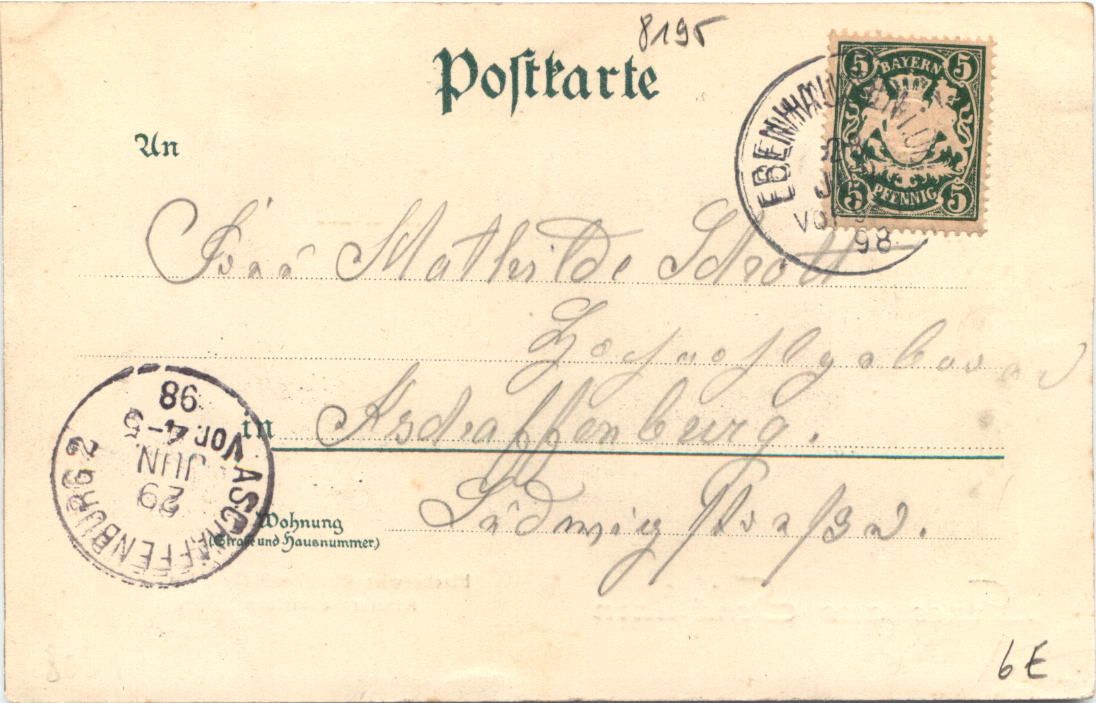 8195
Postkarte
BAYERN
5 5
5 5
PFENNIG
EBENHAUSEN
JUN
VOR
98
An
Frau Mathilde Schott
Hochwohlgeboren
in Aschaffenburg.
Wohnung
(Straße und Hausnummer.)
Ludwigstraße 2.
ASCHAFFENBURG 2
29
JUN
VOR. 4-5
98
6E